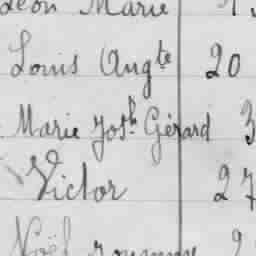 Léon Marie
Louis Augte 20
Marie Josh Gérard 3
Victor 27
Noël